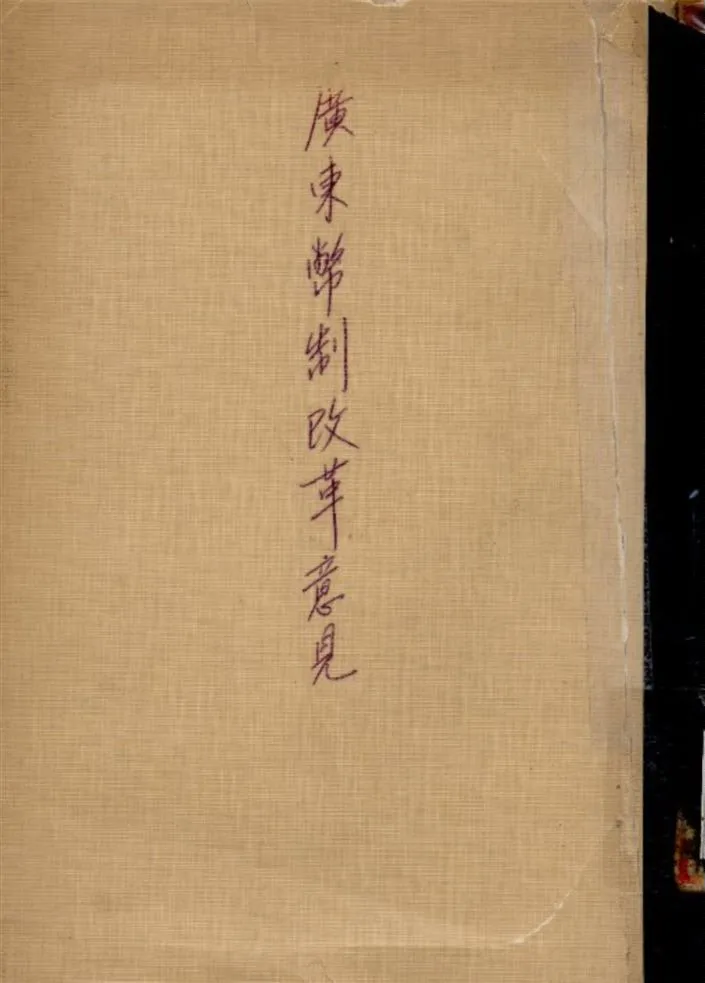 廣東幣制改革意見